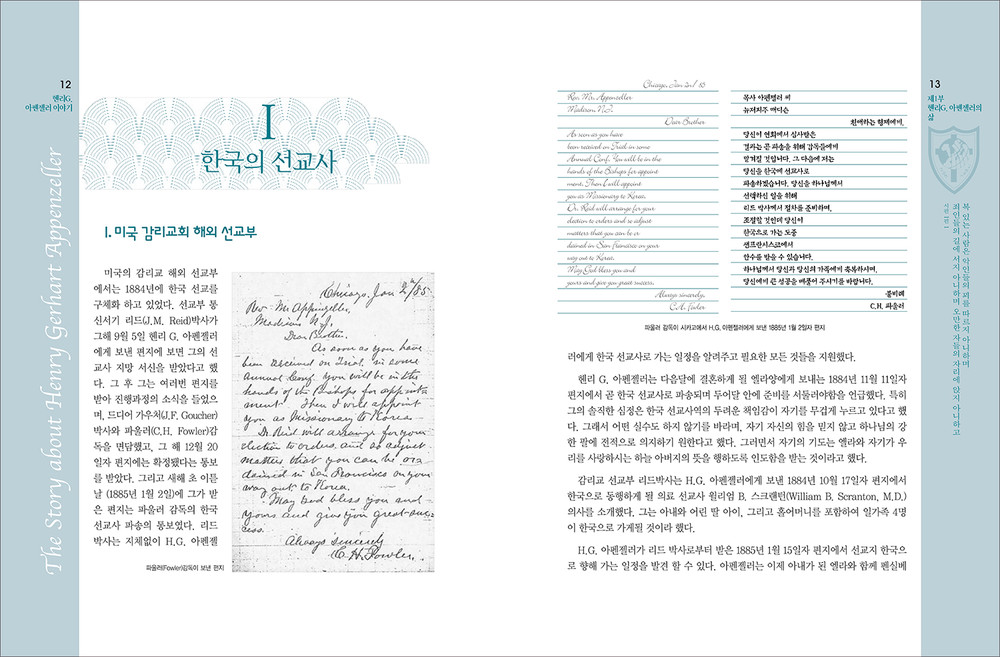 12
헨리G.
아펜젤러 이야기
The Story about Henry Gerhart Appenzeller
I
한국의 선교사
I. 미국 감리교회 해외 선교부
미국의 감리교 해외 선교부
에서는 1884년에 한국 선교를
구체화 하고 있었다. 선교부 통
신서기 리드(J.M. Reid)박사가
그해 9월 5일 헨리 G. 아펜젤러
에게 보낸 편지에 보면 그의 선
교사 지망 서신을 받았다고 했
다. 그 후 그는 여러번 편지를
받아 진행과정의 소식을 들었으
며, 드디어 가우처(J.F. Goucher)
박사와 파울러(C.H. Fowler)감
독을 면담했고, 그 해 12월 20
일자 편지에는 확정됐다는 통보
를 받았다. 그리고 새해 초 이튿
날 (1885년 1월 2일)에 그가 받
은 편지는 파울러 감독의 한국
선교사 파송의 통보였다. 리드
박사는 지체없이 H.G. 아펜젤
Chicago, Jan 2/85
Rev. Mr Appenzeller.
Madison N.J.
Dear Brother.
As soon as you have
been received on Trial in some
Annual Conf. you will be in the
hands of the Bishops for appoint
ment. Then I will appoint
you as Missionary to Korea.
Dr. Reid will arrange for your
election to orders, and so adjust
matters that you can be or
dained in San Francisco on your
way out to Korea.
May God bless you and
yours and give you great suc
cess.
Always sincerely
C. H. Fowler.
파울러(Fowler)감독이 보낸 편지
Chicago, Jan 2nd / 85
Rev. Mr. Appenzeller
Madison, N.J.
Dear Brother
As soon as you have
been received on Trial in some
Annual Conf. You will be in the
hands of the Bishops for appoint
ment. Then I will appoint
you as Missionary to Korea.
Dr. Reid will arrange for your
election to orders and so adjust
matters that you can be or
dained in San Francisco on your
way out to Korea.
May God bless you and
yours and give you great success.
Always sincerely,
C.H. Fowler
목사 아펜젤러 씨
뉴저지주 매디슨
친애하는 형제에게.
당신이 연회에서 심사받은
결과는 곧 파송을 위해 감독들에게
맡겨질 것입니다. 그 다음에 저는
당신을 한국에 선교사로
파송하겠습니다. 당신을 하나님께서
선택하신 일을 위해
리드 박사께서 절차를 준비하며,
조절할 것인데 당신이
한국으로 가는 도중
샌프란시스코에서
안수를 받을 수 있습니다.
하나님께서 당신과 당신의 가족에게 축복하시며,
당신에게 큰 성공을 베풀어 주시기를 바랍니다.
불비례
C.H. 파울러
파울러 감독이 시카고에서 H.G. 아펜젤러에게 보낸 1885년 1월 2일자 편지
러에게 한국 선교사로 가는 일정을 알려주고 필요한 모든 것들을 지원했다.
헨리 G. 아펜젤러는 다음달에 결혼하게 될 엘라양에게 보내는 1884년 11월 11일자
편지에서 곧 한국 선교사로 파송되며 두어달 안에 준비를 서둘러야함을 언급했다. 특히
그의 솔직한 심정은 한국 선교사역의 두려운 책임감이 자기를 무겁게 누르고 있다고 했
다. 그래서 어떤 실수도 하지 않기를 바라며, 자기 자신의 힘을 믿지 않고 하나님의 강
한 팔에 전적으로 의지하기 원한다고 했다. 그러면서 자기의 기도는 엘라와 자기가 우
리를 사랑하시는 하늘 아버지의 뜻을 행하도록 인도함을 받는 것이라고 했다.
감리교 선교부 리드박사는 H.G. 아펜젤러에게 보낸 1884년 10월 17일자 편지에서
한국으로 동행하게 될 의료 선교사 윌리엄 B. 스크랜턴(William B. Scranton, M.D.)
의사를 소개했다. 그는 아내와 어린 딸 아이, 그리고 홀어머니를 포함하여 일가족 4명
이 한국으로 가게될 것이라 했다.
H.G. 아펜젤러가 리드 박사로부터 받은 1885년 1월 15일자 편지에서 선교지 한국으
로 향해 가는 일정을 발견 할 수 있다. 아펜젤러는 이제 아내가 된 엘라와 함께 펜실베
13
제1부
헨리G. 아펜젤러의
삶
복 있는 사람은 악인들의 꾀를 따르지 아니하며
죄인들의 길에 서지 아니하며 오만한 자들의 자리에 앉지 아니하고
시편 1편 1